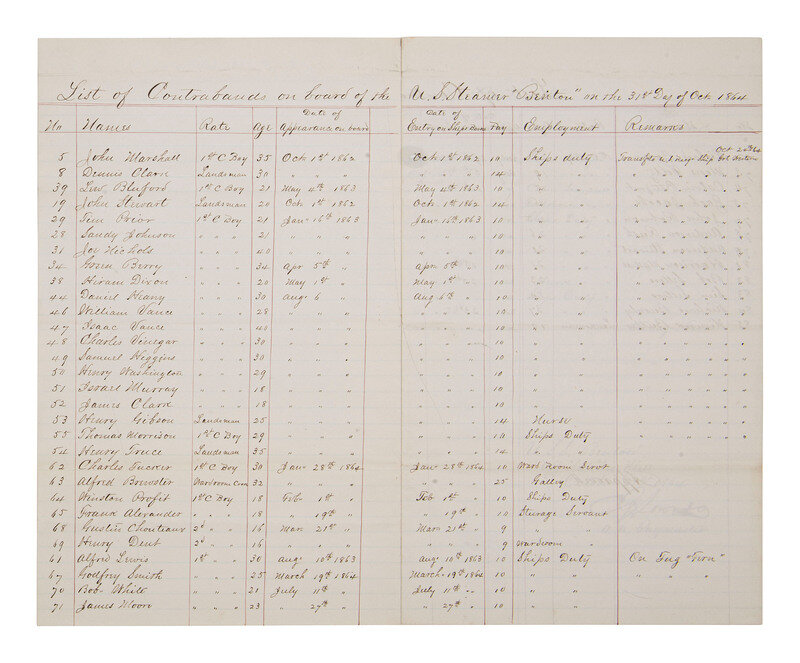 List of Contrabands on board of the U. S. Steamer "Benton" on the 31st Day of Oct 1864
No Names Rate Age Date of Appearance on board Date of Entry on Ships Books Pay Employment Remarks
5 John Marshall 1st C Boy 35 Oct 1st 1862 Oct 1st 1862 10 Ships duty Oct 20th 64
8 Dennis Clark Landsman 30 " " " " " " 14 " " " " " " " "
39 Lew Bluford 1st C Boy 21 May 4th 1863 May 4th 1863 10 " " " " " " " "
19 John Stewart Landsman 20 Oct 1st 1862 Oct 1st 1862 14 " " " " " " " "
29 Tom Prior 1st C Boy 21 Jan 16th 1863 Jan 16th 1863 10 " " " " " " " "
28 Sandy Johnson " " " 21 " " " " " " 10 " " " " " " " "
31 Joe Nichols " " " 40 " " " " " " 10 " " " " " " " "
34 Green Berry " " " 34 Apr 5th " Apr 5th " 10 " " " " " " " "
38 Hiram Dixon " " " 20 May 1st " May 1st " 10 " " " " " " " "
44 Daniel Heany " " " 30 Aug 6 " Aug 6th " 10 " " " " " " " "
46 William Vance " " " 28 " " " " " " 10 " " " " " " " "
47 Isaac Vance " " " 40 " " " " " " 10 " " " " " " " "
48 Charles Venegar " " " 30 " " " " " " 10 " " " " " " " "
49 Samuel Heggins " " " 30 " " " " " " 10 " " " " " " " "
50 Henry Washington " " " 29 " " " " " " 10 " " " " " " " "
51 Israel Murray " " " 18 " " " " " " 10 " " " " " " " "
52 James Clark " " " 18 " " " " " " 10 " " " " " " " "
53 Henry Gibson Landsman 25 " " " " " " 14 Nurse " " " " " "
55 Thomas Morrison 1st C Boy 29 " " " " " " 10 Ships Duty " " " " " "
54 Henry Truce Landsman 35 " " " " " " 14 " "
62 Charles Tucker 1st C Boy 30 Jan 28th 1864 Jan 28th 1864 10 Ward Room Servt
63 Alfred Brewster Wardroom Cook 32 " " " " " " 25 Galley
64 Winston Profit 1st C Boy 18 Feb 1st " Feb 1st " 10 Ships Duty
65 Frank Alexander " " " 18 " 19th " " 19th " 10 Sturage Servant
68 Gustin Chouteaux 2d " " 16 Mar 21st " Mar 21st " 9 " "
69 Henry Dent 2d " " 16 " " " " " " 9 Wardroom "
61 Alfred Lewis 1st " " 30 Aug 10th 1863 Aug 10th 1863 10 Ships Duty On Tug "Fern"
67 Godfrey Smith " " " 25 March 19th 1864 March 19th 1864 10 " " " " "
70 Bob White " " " 21 July 11th " July 11th " 10 " "
71 James Moore " " " 23 " 27th " " 27th " 10 " "